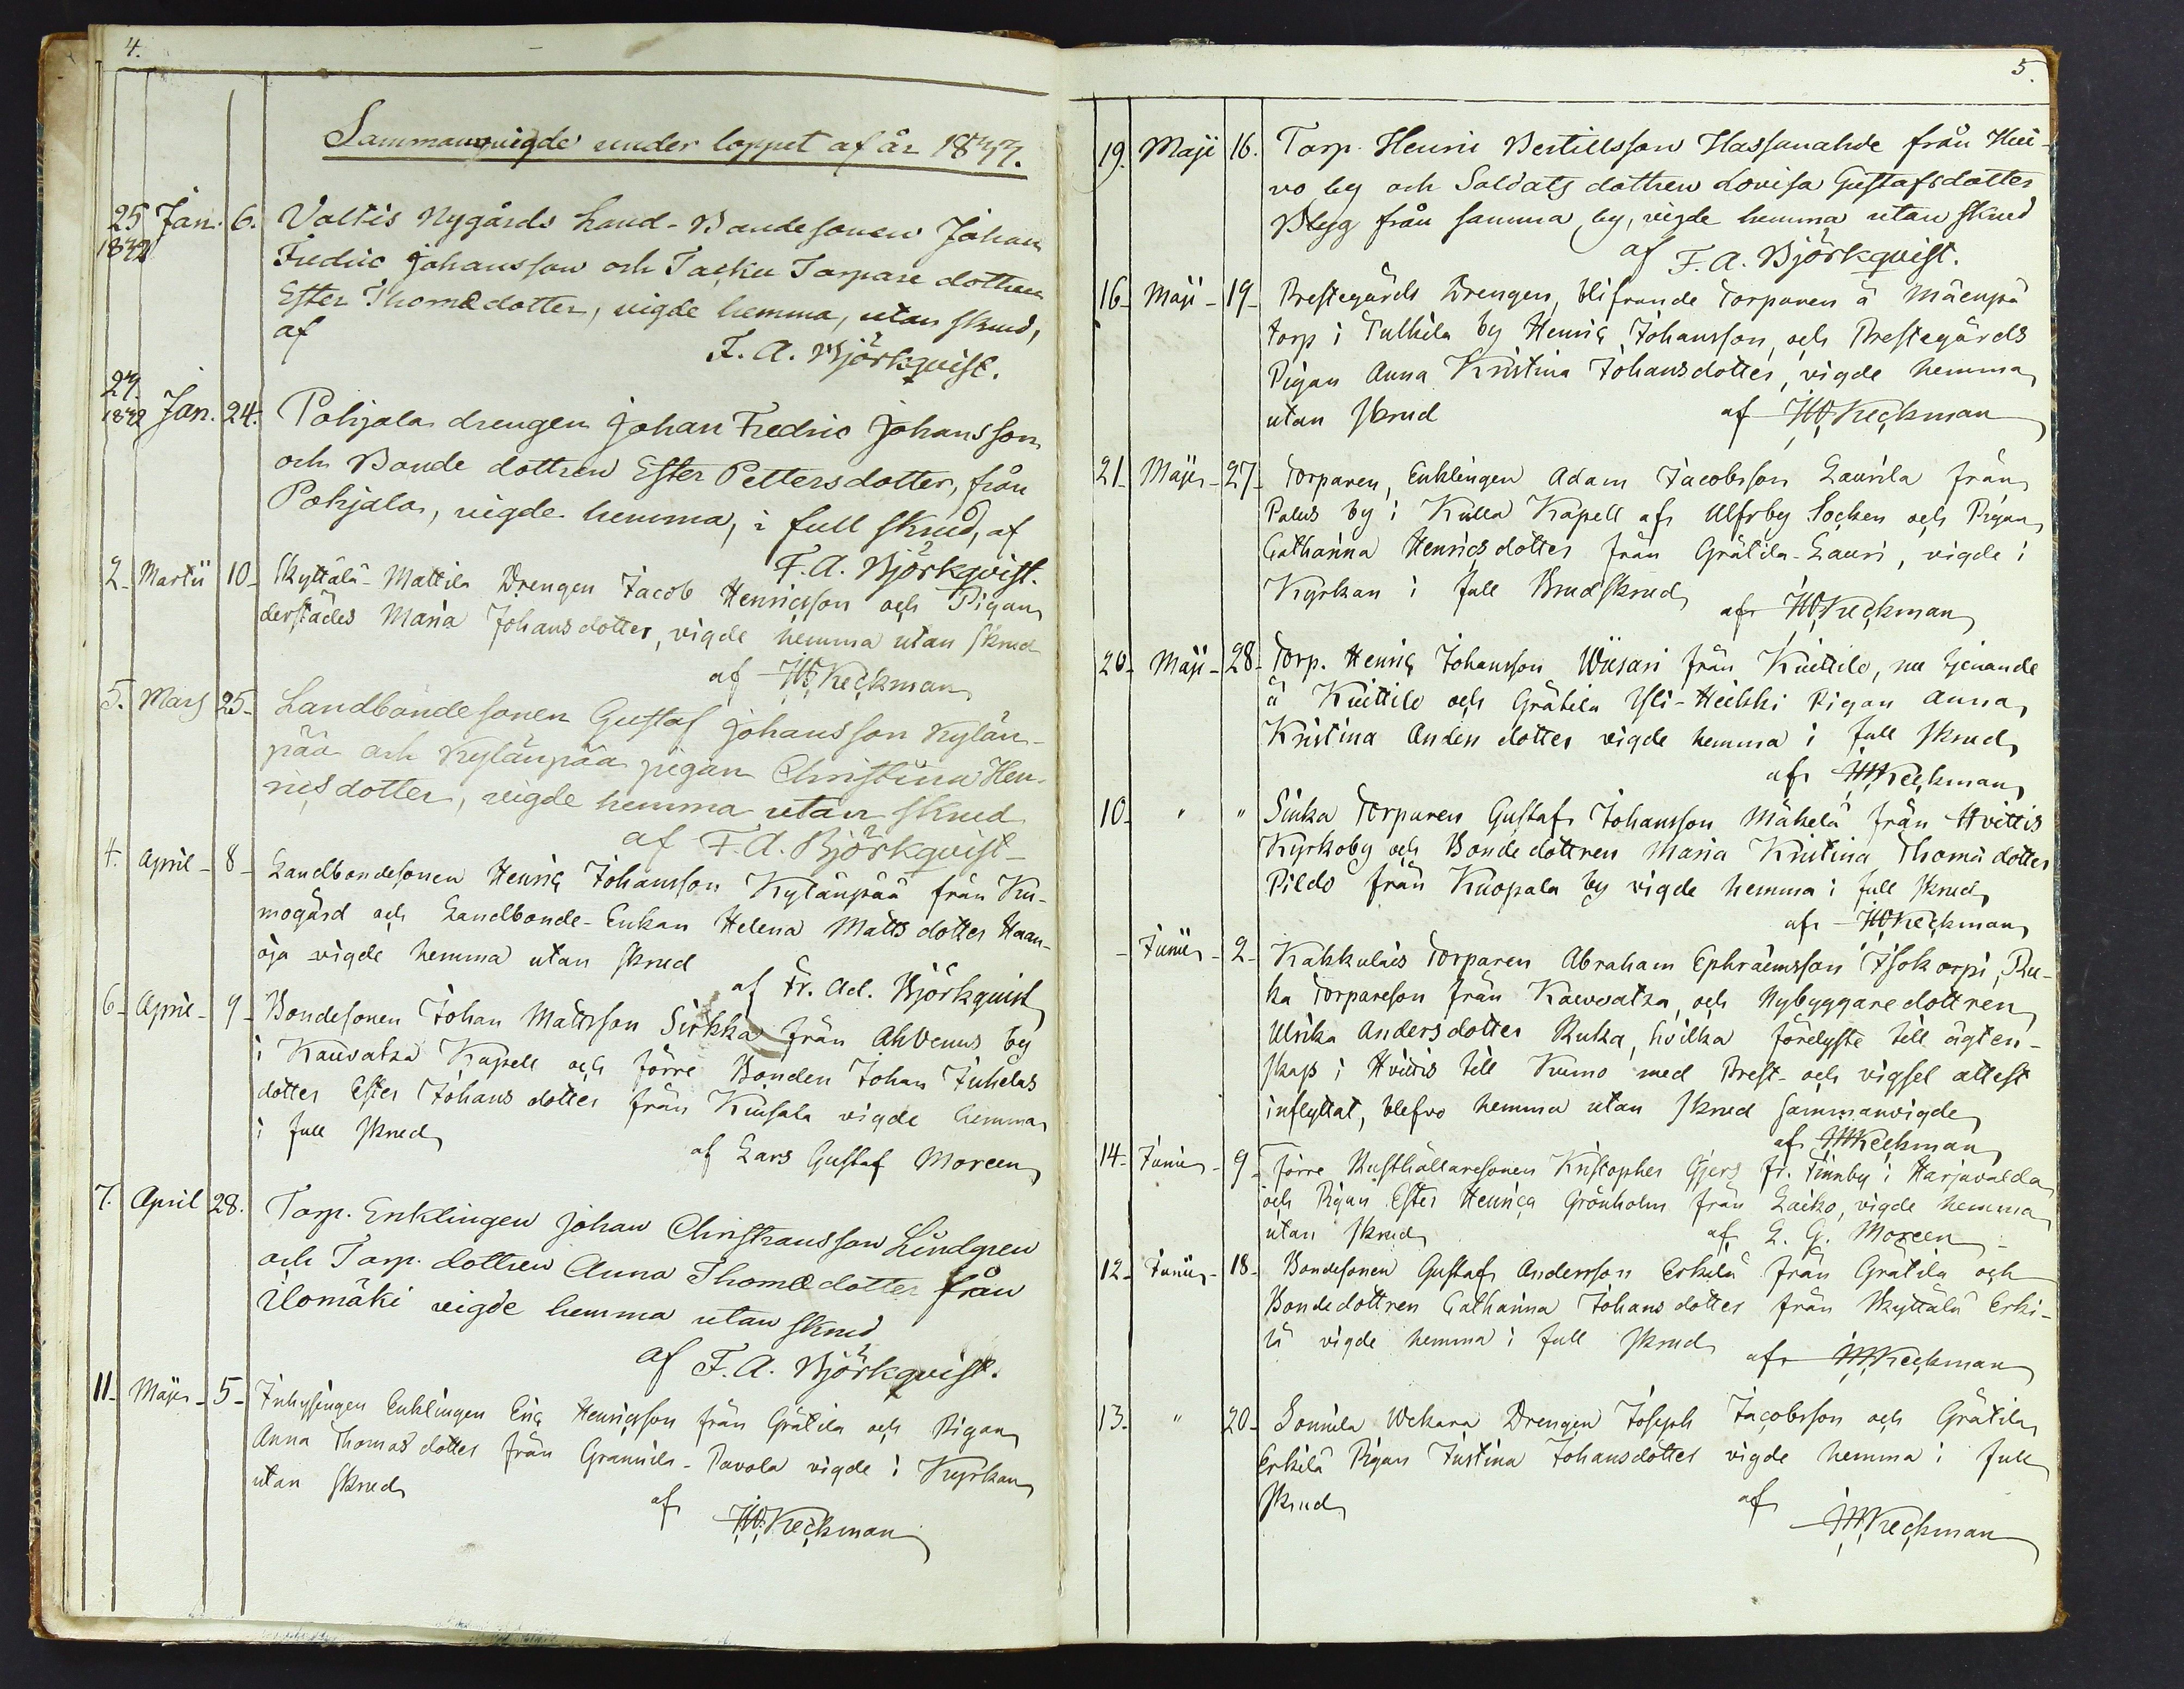 4.
Sammanvigde under loppet af år 1833.
25 Jan. 6. Valtis Nygårds Land-Bondesonen Johan
1832 Fredric Johansson och Tacku Torpare dottren
Ester Thomædotter, vigde hemma, utan skrud,
af F. A. Björkqvist.
27.
1832 Jan. 24. Pohjala drengen Johan Fredric Johansson
och Bonde dottren Ester Pettersdotter, från
Pohjala, vigde hemma, i full skrud, af
F. A. Björkqvist.
2. Martii 10. Skyttälä-Mattila Drengen Jacob Henricsson och Pigan
derstädes Maria Johansdotter, vigde hemma utan skrud
af Keckman
5. Mars 25. Landbondesonen Gustaf Johansson Kylän-
pää och Kylänpää pigan Christina Hen-
ricsdotter, vigde hemma utan skrud
af F. A. Björkqvist
4. April 8 Landbondesonen Henric Johansson Kylänpää från Ku-
mogård och Landbonde-Enkan Helena Matts dotter Haan-
oja vigde hemma utan skrud
af Fr. Ad. Björkquist
6. April 9 Bondesonen Johan Mattsson Sirkka från Ahvenus by
i Kauvatsa Kapell och förre Bonden Johan Juhelas
dotter Ester Johans dotter från Kuusala vigde hemma
i full skrud
af Lars Gustaf Moreen
7. April 28. Torp. Enklingen Johan Christiansson Lindgren
och Torp. dottren Anna Thomædotter från
Ilomäki vigde hemma utan skrud
af F. A. Björkqvist.
11. Maji 5 Inhysingen Enklingen Eric Henricsson från Grätila och Pigan
Anna Thomas dotter från Grannila-Pavola vigde i Kyrkan
utan skrud
af Keckman
5.
19. Maji 16. Torp. Henric Bertillsson Hassanahde från Hui-
vo by och Soldats dottren Lovisa Gustafsdotter
Blyg från samma by, vigde hemma utan skrud
af F. A. Björkqvist.
16. Maji 19 Prestegårds Drengen, blifvande Torparen å Mäenpä
torp i Tulkila by Henric Johansson, och Prestegårds
Pigan Anna Kristina Johansdotter, vigde hemma
utan skrud af Keckman
21 Maji 27 Torparen, Enklingen Adam Jacobsson Laurila från
Palus by i Kulla Kapell af Ulfsby Socken och Pigan
Catharina Henricsdotter från Grätila-Lauri, vigde i
Kyrkan i full Brudskrud
af Keckman
20 Maji 28 Torp. Henric Johansson Wiisari från Kuittilo, nu tjenande
å Kuittilo och Grätila Yli-Heikki Pigan Anna
Kristina Anders dotter vigde hemma i full skrud
af Keckman
10 " " Sinka Torparen Gustaf Johansson Mäkelä från Hvittis
Kyrkoby och Bonde dottren Maria Kristina Thomædotter
Pildo från Kuopala by vigde hemma i full skrud
af Keckman
- Junii 2 Kakkulais Torparen Abraham Ephraimsson Isokorpi, Ru-
ka Torpareson från Kauvatsa, och Nybyggaredottren
Ulrika Andersdotter Ruka, hvilka förelyste till ägten-
skap i Hvittis till Kumo med Prest- och vigsel attest
inflyttat, blefvo hemma utan skrud sammanvigde
af Keckman
14. Junii 9 förre Rusthållaresonen Kristopher Gjers fr. Finnby i Harjavalda
och Pigan Ester Henrica Grönholm från Laiko, vigde hemma
utan skrud af L. G. Moreen
12. Junii 18 Bondesonen Gustaf Andersson Erkilä från Grätila och
Bondedottren Catharina Johansdotter från Skyttälä Erki-
lä vigde hemma i full skrud
af Keckman
13. " 20 Sonnila Uckara Drengen Joseph Jacobsson och Grätila
Erkilä Pigan Justina Johansdotter vigde hemma i full
skrud
af Keckman